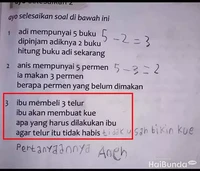 ayo selesaikan soal di bawah ini
1 adi mempunyai 5 buku
dipinjam adiknya 2 buku 5-2=3
hitung buku adi sekarang
2 anis mempunyai 5 permen
ia makan 3 permen 5-3=2
berapa permen yang belum dimakan
3 ibu membeli 3 telur
ibu akan membuat kue
apa yang harus dilakukan ibu
agar telur itu tidak habis tidak usah bikin kue
Pertanyaannya Aneh
HaiBunda